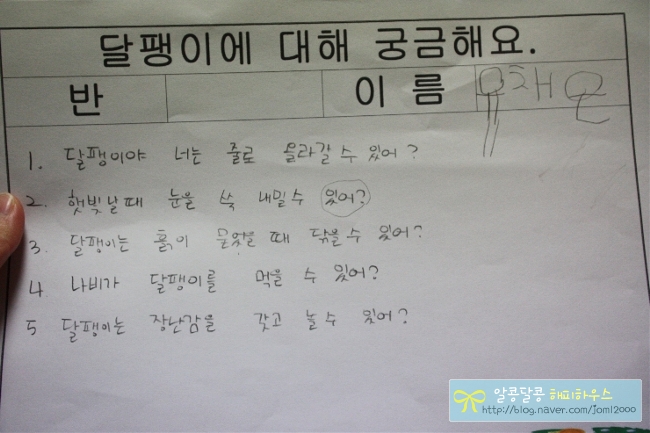 달팽이에 대해 궁금해요.
반 이름 유채은
1. 달팽이야 너는 줄로 올라갈 수 있어?
2. 햇빛날때 눈을 쏙 내밀수 있어?
3. 달팽이는 흙이 묻었을 때 닦을수 있어?
4 나비가 달팽이를 먹을 수 있어?
5 달팽이는 장난감을 갖고 놀 수 있어?
알콩달콩 해피하우스
http://blog.naver.com/joml2000